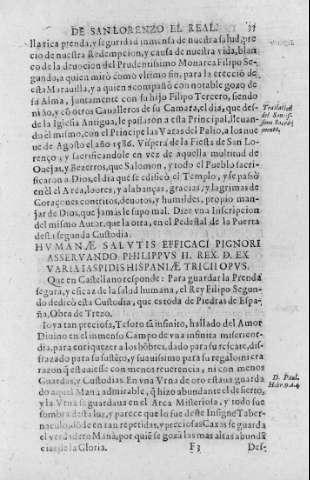 DE SAN LORENZO EL REAL. 35
lla rica prenda, y seguridad inmensa de nuestra salud, precio
de nuestra Redempcion, y causa de nuestra vida, blanco
de la deuocion del Prudentissimo Monarca Filipo Segundo,
a quien mirò como vltimo fin, para la ereccion de
esta Marauilla, y a quien acompañò con notable gozo de
su Alma, juntamente con su hijo Filipo Tercero, siendo
niño, y cō otros Caualleros de su Camara, el dia, que desde
la Iglesia Antigua, le passaron a esta Principal, lleuando
èl mismo, con el Principe las Varas del Palio, a los nueue
de Agosto el año 1586. Vispera de la Fiesta de San Lorenço;
y sacrificandole en vez de aquella multitud de
Ouejas, y Bezerros, que Salomon, y todo el Pueblo sacrificaron
a Dios, el dia que se edificò el Templo, y se passò
en èl el Arca, loores, y alabanças, gracias, y lagrimas de
Coraçones contritos, deuotos, y humildes, propio manjar
de Dios, que jamàs le supo mal. Dize vna Inscripcion
del mismo Autor, que la otra, en el Pedestal de la Puerta
desta segunda Custodia.
HVMANÆ SALVTIS EFFICACI PIGNORI
ASSERVANDO PHILIPPVS II. REX. D. EX
VARIA IASPIDIS HISPANIÆ TRICHI OPVS.
Que en Castellano responde: Para guardar la Prenda
segura, y eficaz de la salud humana, el Rey Filipo Segundo
dedicò esta Custodia, que es toda de Piedras de España,
Obra de Trezo.
Ioya tan preciosa, Tesoro tā infinito, hallado del Amor
Diuino en el inmenso Campo de vna infinita misericordia,
para enriquezer a los hōbres, dado para su rescate, disfrazado
para su sustēto, y suauissimo para su regalo; era
razon q̃ estuuiesse con menos reuerencia, ni con menos
Guardas, y Custodias. En vna Vrna de oro estaua guarda
do aquel Manà admirable, q̃ hizo abundante el desierto,
y la Vrna se guardaua en el Arca Misteriosa, y todo fue
sombra desta luz, y parece que lo fue deste Insigne Tabernaculo,
dōde en tan repetidas, y preciosas Caxas se guarda
el verdadero Manà, por quiē se goza las mas altas abundācias
de la Gloria. F3 Des-
Traslacion
del Santissimo
Sacramento.
D. Paul.
Hæbr. 9. 4.